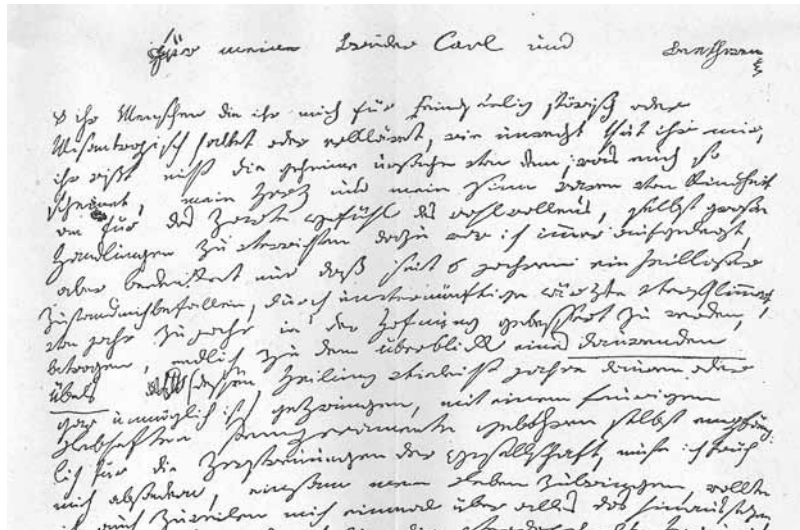 für meine Brüder Carl und Beethowen
o ihr Menschen die ihr mich für Feindseelig störisch oder
Misantropisch haltet oder erkläret, wie unrecht thut ihr mir,
ihr wißt nicht die geheime ursache von dem, was euch so
scheinet, mein Herz und mein Sinn waren von Kindheit
an für das Zarte gefühl des wohlwollens, selbst große
Handlungen zu verrichten dazu war ich immer aufgelegt,
aber bedenket nur daß seit 6 jahren ein heilloser
Zustand mich befallen, durch unvernünftige ärzte verschlimmert,
von jahr zu jahr in der Hofnung gebessert zu werden,
betrogen, endlich zu dem überblick eines daurenden
übels dessen Heilung vieleicht jahre dauren oder
gar unmöglich ist gezwungen, mit einem feurigen
lebhaften Temperamente gebohren selbst empfäng-
lich für die Zerstreuungen der gesellschaft, muste ich früh
mich absondern, einsam mein Leben zubringen, wollte
ich auch zuweilen mich einmal über alles das hinaussezen